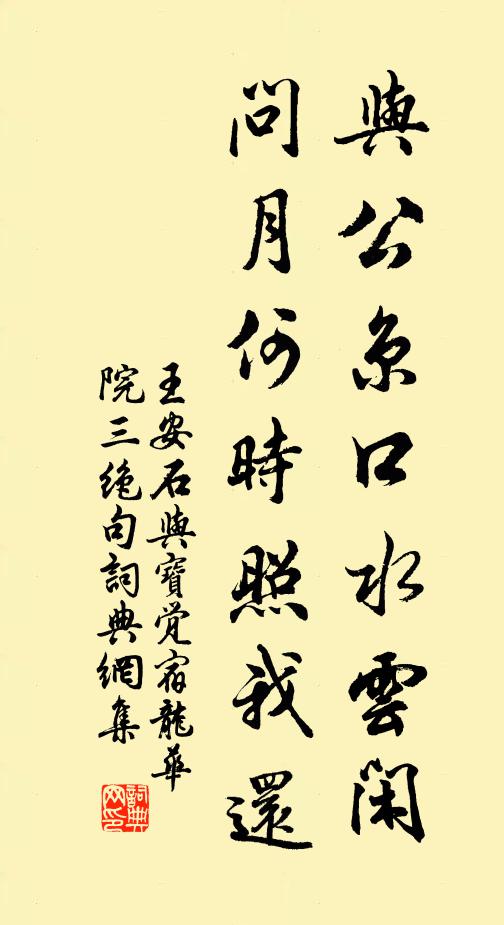 與公京口水雲閑
問月何時照我還
王安石與寶覺宿龍華
院三絕句詞典網集
詞典
网印